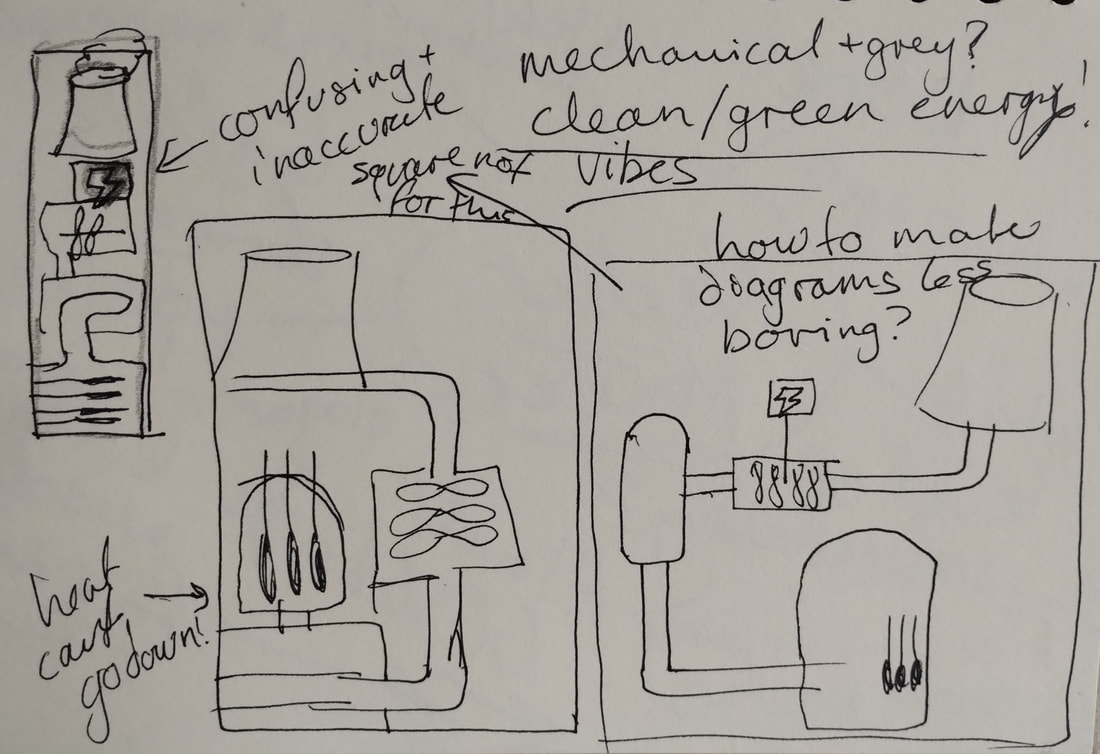 confusing +
inaccurate
mechanical + grey?
clean/green energy!
vibes
square not
for this
how to make
diagrams less
boring?
heat
can't
go down!